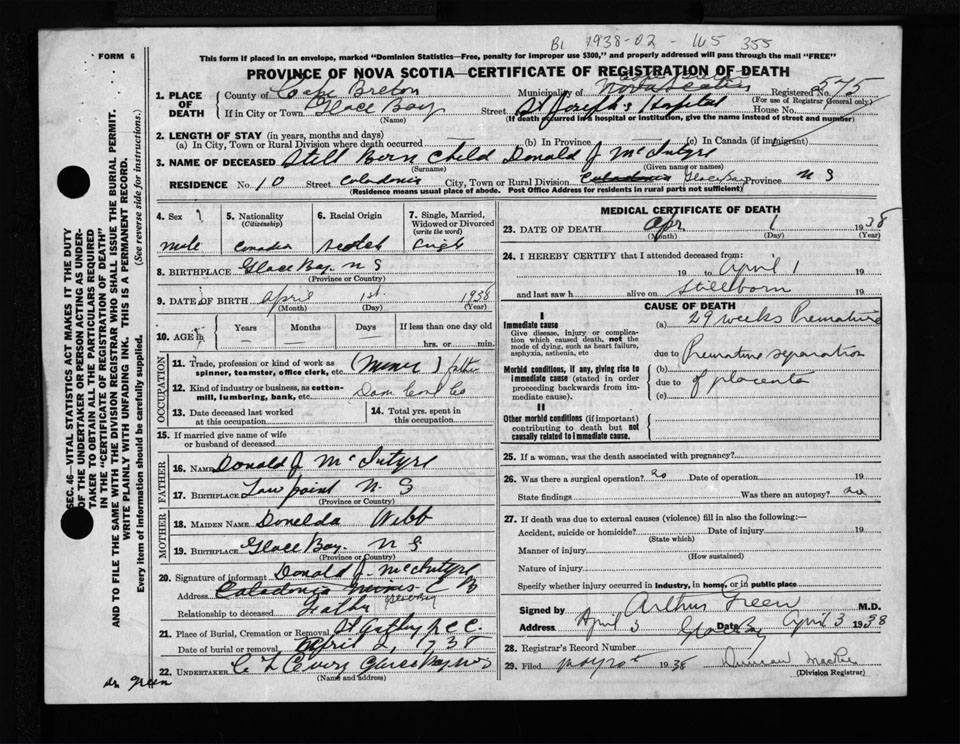 BL 1938-02-165 355
FORM 6
This form if placed in an envelope, marked "Dominion Statistics—Free, penalty for improper use $300," and properly addressed will pass through the mail "FREE"
PROVINCE OF NOVA SCOTIA—CERTIFICATE OF REGISTRATION OF DEATH
SEC. 46—VITAL STATISTICS ACT MAKES IT THE DUTY
OF THE UNDERTAKER OR PERSON ACTING AS UNDER-
TAKER TO OBTAIN ALL THE PARTICULARS REQUIRED
IN THE "CERTIFICATE OF REGISTRATION OF DEATH"
AND TO FILE THE SAME WITH THE DIVISION REGISTRAR WHO SHALL ISSUE THE BURIAL PERMIT.
WRITE PLAINLY WITH UNFADING INK. THIS IS A PERMANENT RECORD.
Every item of information should be carefully supplied. (See reverse side for instructions.)
1. PLACE OF DEATH
County of Cape Breton Municipality of Nova Scotia Registered No. 575
(For use of Registrar General only)
If in City or Town Glace Bay (Name) Street St Joseph's Hospital House No.
(If death occurred in a hospital or institution, give the name instead of street and number)
2. LENGTH OF STAY (in years, months and days)
(a) In City, Town or Rural Division where death occurred — (b) In Province — (c) In Canada (if immigrant)
3. NAME OF DECEASED Still Born Child Donald J McIntyre
(Surname) (Given name or names)
RESIDENCE No. 10 Street Caledonia City, Town or Rural Division Caledonia Glace Bay Province N S
(Residence means usual place of abode. Post Office Address for residents in rural parts not sufficient)
4. Sex Male
5. Nationality (Citizenship) Canadia
6. Racial Origin Scotch
7. Single, Married, Widowed or Divorced (write the word) Single
8. BIRTHPLACE Glace Bay. N S
(Province or Country)
9. DATE OF BIRTH April 1st 1938
(Month) (Day) (Year)
10. AGE Years Months Days If less than one day old
— — — hrs. or min.
OCCUPATION
11. Trade, profession or kind of work as spinner, teamster, office clerk, etc. (Miner) father
12. Kind of industry or business, as cotton-mill, lumbering, bank, etc. Dom Coal Co
13. Date deceased last worked at this occupation
14. Total yrs. spent in this occupation
15. If married give name of wife or husband of deceased
FATHER
16. NAME Donald J McIntyre
17. BIRTHPLACE Low point N. S
(Province or Country)
MOTHER
18. MAIDEN NAME Donelda Webb
19. BIRTHPLACE Glace Bay. N S
(Province or Country)
20. Signature of informant Donald J. McIntyre
Address Caledonia Mines C B
Relationship to deceased Father
21. Place of Burial, Cremation or Removal
Date of burial or removal April 2, 1938
22. UNDERTAKER
(Name and address)
Dr Green
MEDICAL CERTIFICATE OF DEATH
23. DATE OF DEATH Apr 1 1938
(Month) (Day) (Year)
24. I HEREBY CERTIFY that I attended deceased from:
19 to April 1 19
and last saw h alive on Stillborn 19
CAUSE OF DEATH
I
Immediate cause
Give disease, injury or complication which caused death, not the mode of dying, such as heart failure, asphyxia, asthenia, etc
(a) 29 weeks Premature
due to Premature separation
Morbid conditions, if any, giving rise to immediate cause (stated in order proceeding backwards from immediate cause).
(b)
due to of placenta
(c)
II
Other morbid conditions (if important) contributing to death but not causally related to immediate cause.
25. If a woman, was the death associated with pregnancy?
26. Was there a surgical operation? no Date of operation 19
State findings Was there an autopsy? no
27. If death was due to external causes (violence) fill in also the following:—
Accident, suicide or homicide? Date of injury 19
(State which)
Manner of injury
(How sustained)
Nature of injury
Specify whether injury occurred in industry, in home, or in public place
Signed by Arthur Green M.D.
Address April 3 Glace Bay Date April 3 1938
28. Registrar's Record Number
29. Filed 1938
(Division Registrar)